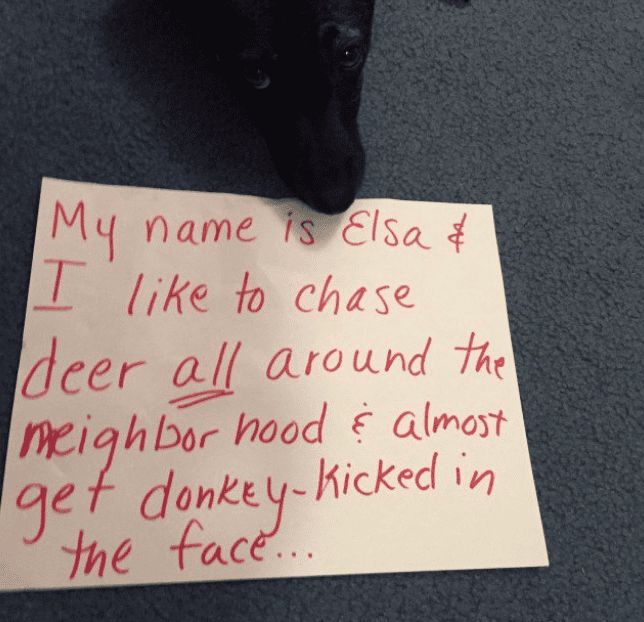 My name is Elsa &
I like to chase
deer all around the
neighbor hood & almost
get donkey-kicked in
the face...